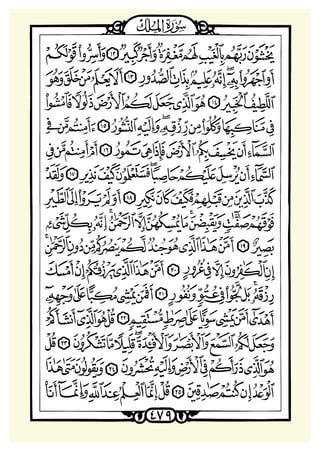 سُورَةُ الْمُلْكِ
يَخْشَوْنَ رَبَّهُم بِالْغَيْبِ لَهُم مَّغْفِرَةٌ وَأَجْرٌ كَبِيرٌ ١٢ وَأَسِرُّوا قَوْلَكُمْ
أَوِ اجْهَرُوا بِهِ إِنَّهُ عَلِيمٌ بِذَاتِ الصُّدُورِ ١٣ أَلَا يَعْلَمُ مَنْ خَلَقَ وَهُوَ
اللَّطِيفُ الْخَبِيرُ ١٤ هُوَ الَّذِي جَعَلَ لَكُمُ الْأَرْضَ ذَلُولًا فَامْشُوا
فِي مَنَاكِبِهَا وَكُلُوا مِن رِّزْقِهِ وَإِلَيْهِ النُّشُورُ ١٥ ءَأَمِنتُم مَّن فِي
السَّمَاءِ أَن يَخْسِفَ بِكُمُ الْأَرْضَ فَإِذَا هِيَ تَمُورُ ١٦ أَمْ أَمِنتُم مَّن فِي
السَّمَاءِ أَن يُرْسِلَ عَلَيْكُمْ حَاصِبًا فَسَتَعْلَمُونَ كَيْفَ نَذِيرِ ١٧ وَلَقَدْ
كَذَّبَ الَّذِينَ مِن قَبْلِهِمْ فَكَيْفَ كَانَ نَكِيرِ ١٨ أَوَلَمْ يَرَوْا إِلَى الطَّيْرِ
فَوْقَهُمْ صَٰفَّٰتٍ وَيَقْبِضْنَ مَا يُمْسِكُهُنَّ إِلَّا الرَّحْمَٰنُ إِنَّهُ بِكُلِّ شَيْءٍ
بَصِيرٌ ١٩ أَمَّنْ هَٰذَا الَّذِي هُوَ جُندٌ لَّكُمْ يَنصُرُكُم مِّن دُونِ الرَّحْمَٰنِ
إِنِ الْكَٰفِرُونَ إِلَّا فِي غُرُورٍ ٢٠ أَمَّنْ هَٰذَا الَّذِي يَرْزُقُكُمْ إِنْ أَمْسَكَ
رِزْقَهُ بَل لَّجُّوا فِي عُتُوٍّ وَنُفُورٍ ٢١ أَفَمَن يَمْشِي مُكِبًّا عَلَىٰ وَجْهِهِ
أَهْدَىٰ أَمَّن يَمْشِي سَوِيًّا عَلَىٰ صِرَٰطٍ مُّسْتَقِيمٍ ٢٢ قُلْ هُوَ الَّذِي أَنشَأَكُمْ
وَجَعَلَ لَكُمُ السَّمْعَ وَالْأَبْصَٰرَ وَالْأَفْئِدَةَ قَلِيلًا مَّا تَشْكُرُونَ ٢٣ قُلْ
هُوَ الَّذِي ذَرَأَكُمْ فِي الْأَرْضِ وَإِلَيْهِ تُحْشَرُونَ ٢٤ وَيَقُولُونَ مَتَىٰ هَٰذَا
الْوَعْدُ إِن كُنتُمْ صَٰدِقِينَ ٢٥ قُلْ إِنَّمَا الْعِلْمُ عِندَ اللَّهِ وَإِنَّمَا أَنَا
٤٧٩